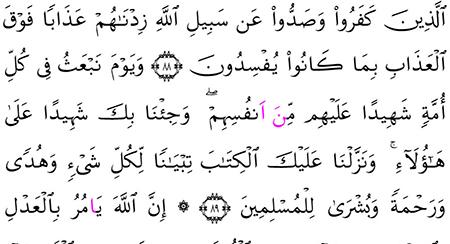 الَّذِينَ كَفَرُواْ وَصَدُّواْ عَن سَبِيلِ اللَّهِ زِدْنَٰهُمْ عَذَابًا فَوْقَ
الْعَذَابِ بِمَا كَانُواْ يُفْسِدُونَ ﴿٨٨﴾ وَيَوْمَ نَبْعَثُ فِى كُلِّ
أُمَّةٍ شَهِيدًا عَلَيْهِم مِّنَ اَنفُسِهِمْ ۖ وَجِئْنَا بِكَ شَهِيدًا عَلَىٰ
هَٰٓؤُلَآءِ ۚ وَنَزَّلْنَا عَلَيْكَ الْكِتَٰبَ تِبْيَٰنًا لِّكُلِّ شَىْءٍ وَهُدًى
وَرَحْمَةً وَبُشْرَىٰ لِلْمُسْلِمِينَ ﴿٨٩﴾ ۞ إِنَّ اللَّهَ يَامُرُ بِالْعَدْلِ